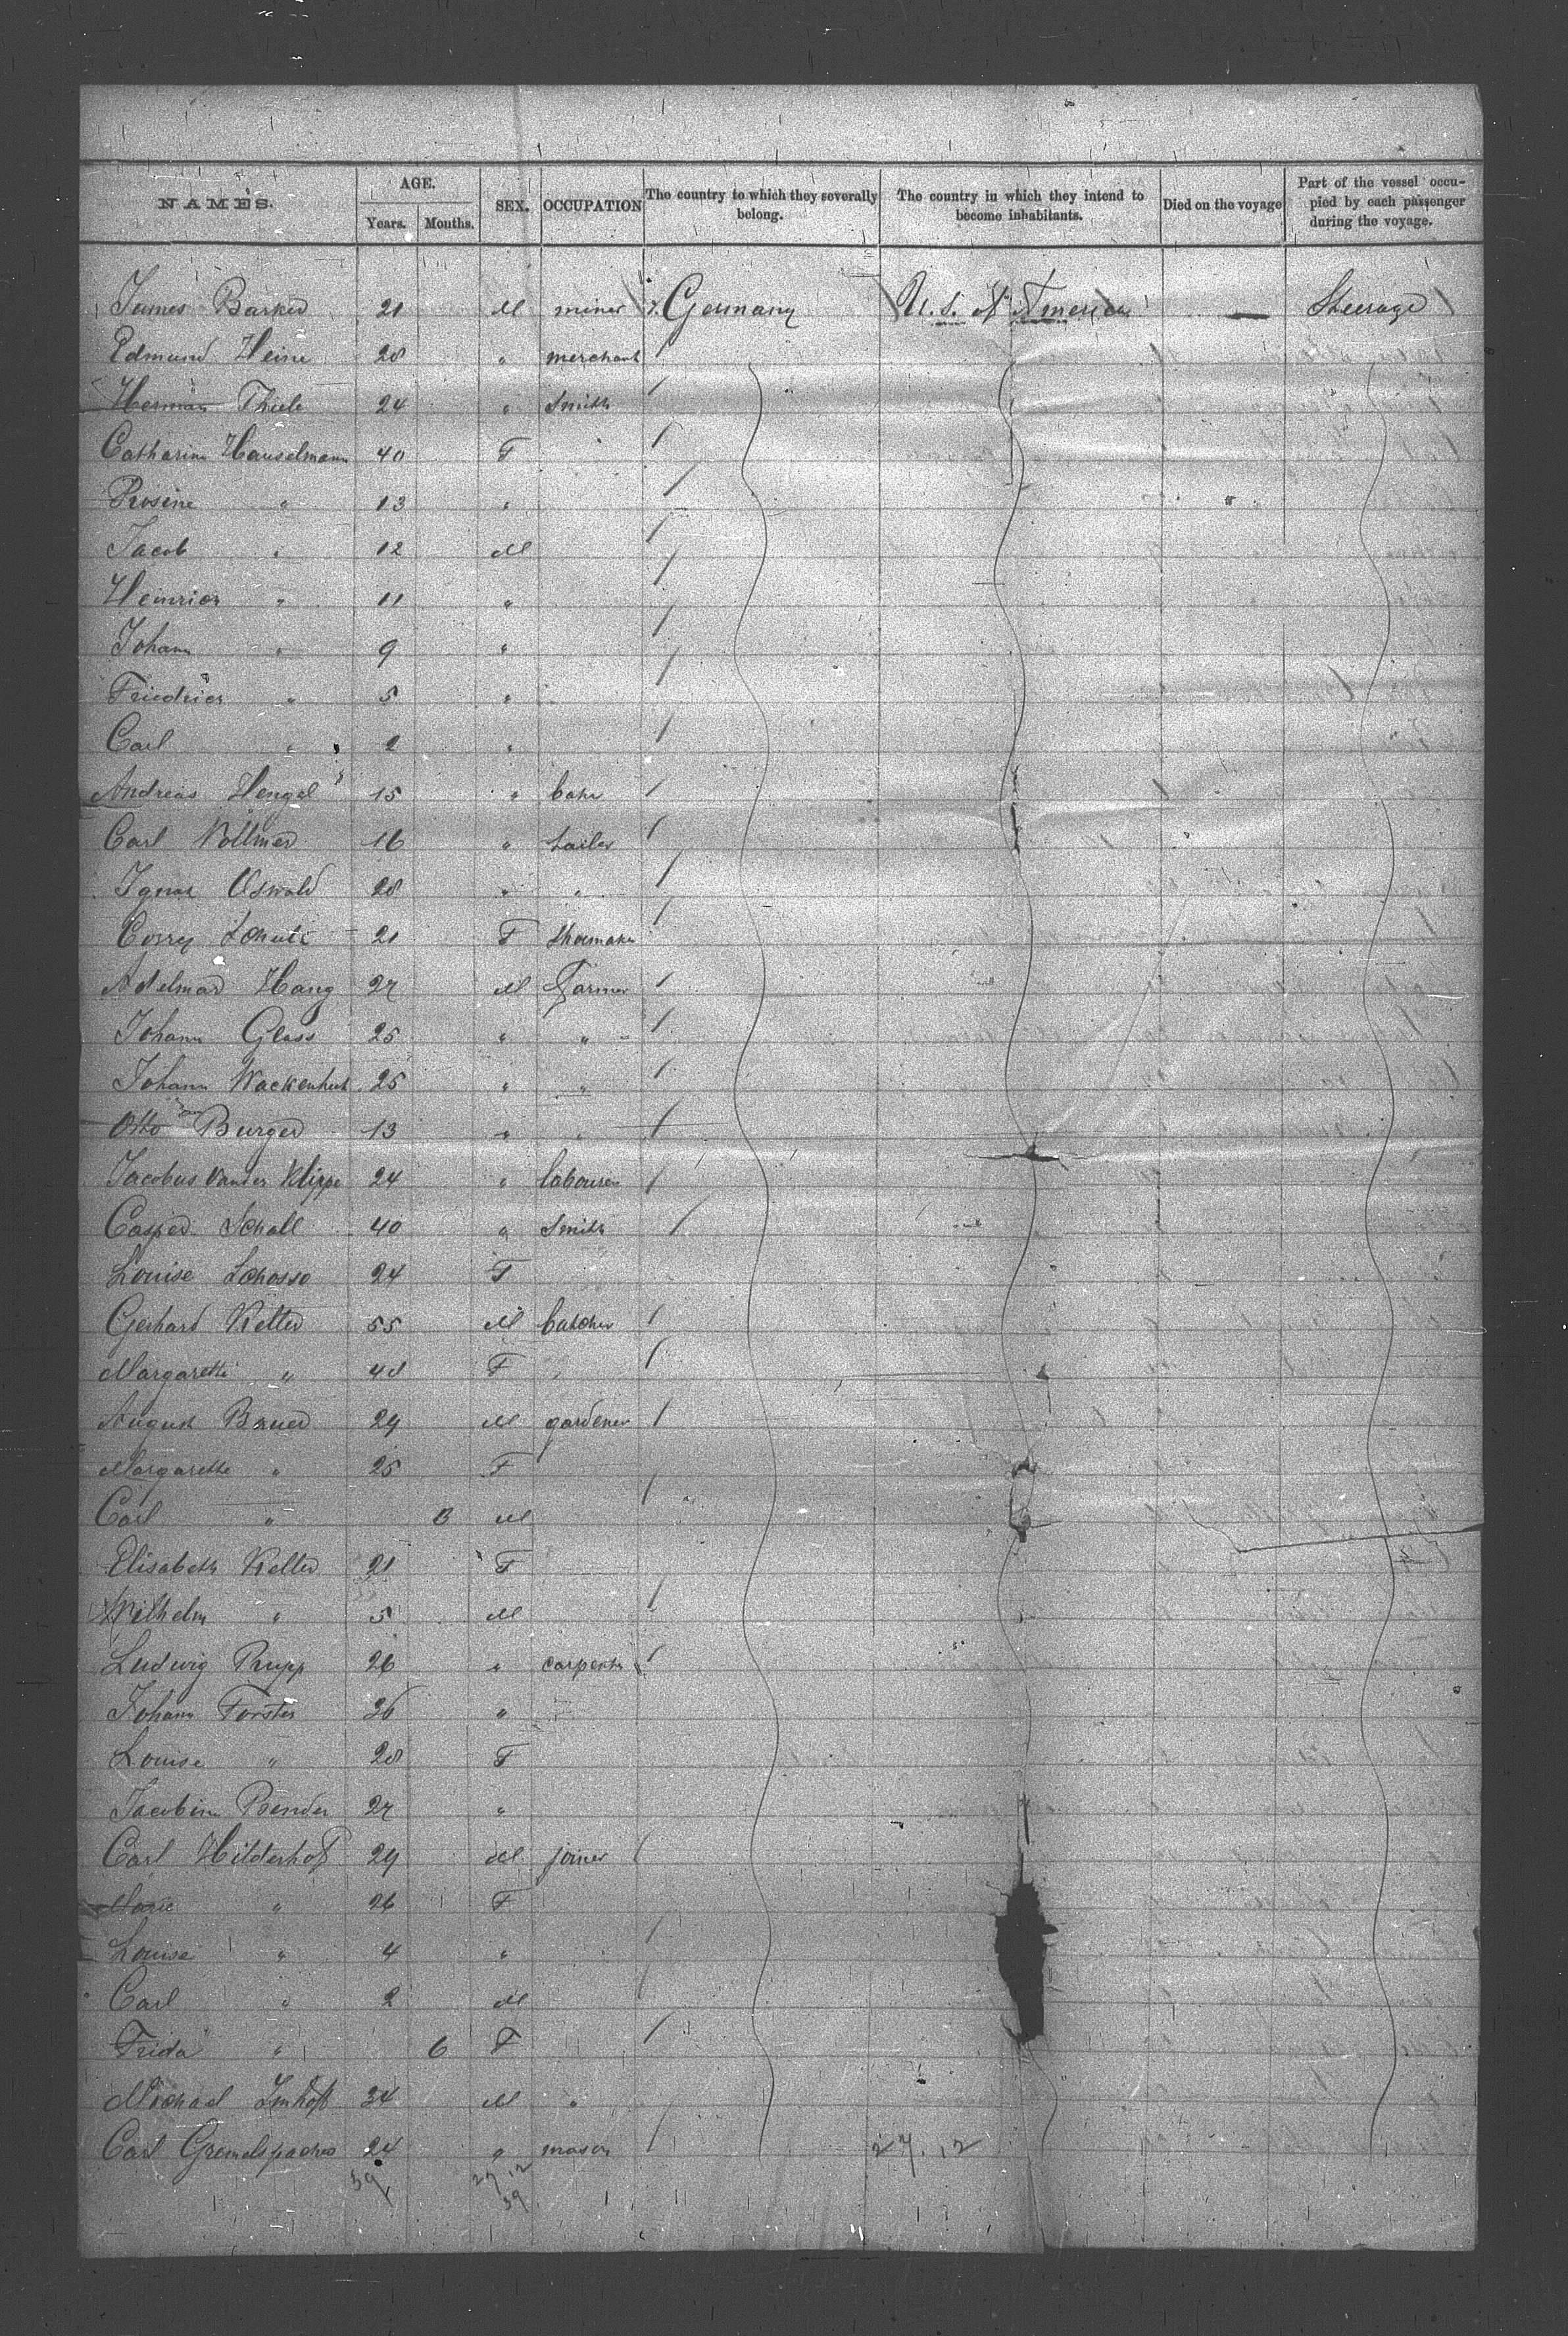 NAMES. AGE. Years. Months. SEX. OCCUPATION The country to which they severally belong. The country in which they intend to become inhabitants. Died on the voyage Part of the vessel occupied by each passenger during the voyage.
James Barker 21 M miner Germany U. S. of America — Steerage
Edmund Heine 28 " merchant
Herman Thiele 24 " Smith
Catharina Hauselmann 40 F
Rosine " 13 " "
Jacob " 12 M
Heinrich " 11 "
Johann " 9 "
Friedrich " 5 "
Carl " 2 "
Andreas Hengel 15 " baker
Carl Vollmer 16 " tailer
Ignaz Oswald 28 " "
Corry Schutz 21 F Shoemaker
Adelmar Haug 27 M Farmer
Johann Glass 25 " "
Johann Wackenhut 25 " "
Otto Burger 13 " "
Jacobus Vander Klippe 24 " labourer
Casper Schall 40 " Smith
Louise Schosso 24 F
Gerhard Keller 55 M butcher
Margarethe " F
August Bauer 29 M gardener
Margarethe " 25 F
Carl " M
Elisabeth Keller 21 F
Wilhelm " 5 M
Ludwig Rupp 26 " carpenter
Johann Forster 36 "
Louise " 28 F
Jacobine Bender 27 "
Carl Hilderhof 29 M joiner
Marie " 26 F
Louise " 4 "
Carl " 2 M
Frida " 6 F
Michael Imhoff 34 M "
Carl Gremelspacher 24 " mason 27. 12
39 27 12
39